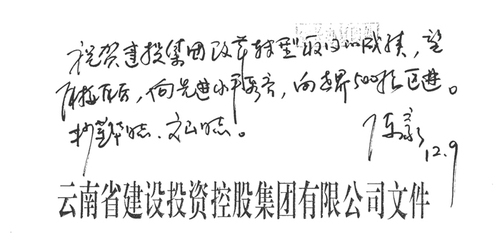 祝贺建投集团改革转型取得的成绩，望
再接再厉，向先进水平看齐，向世界500强迈进。
抄 同志、文山同志。
陈豪
12.9
云南省建设投资控股集团有限公司文件